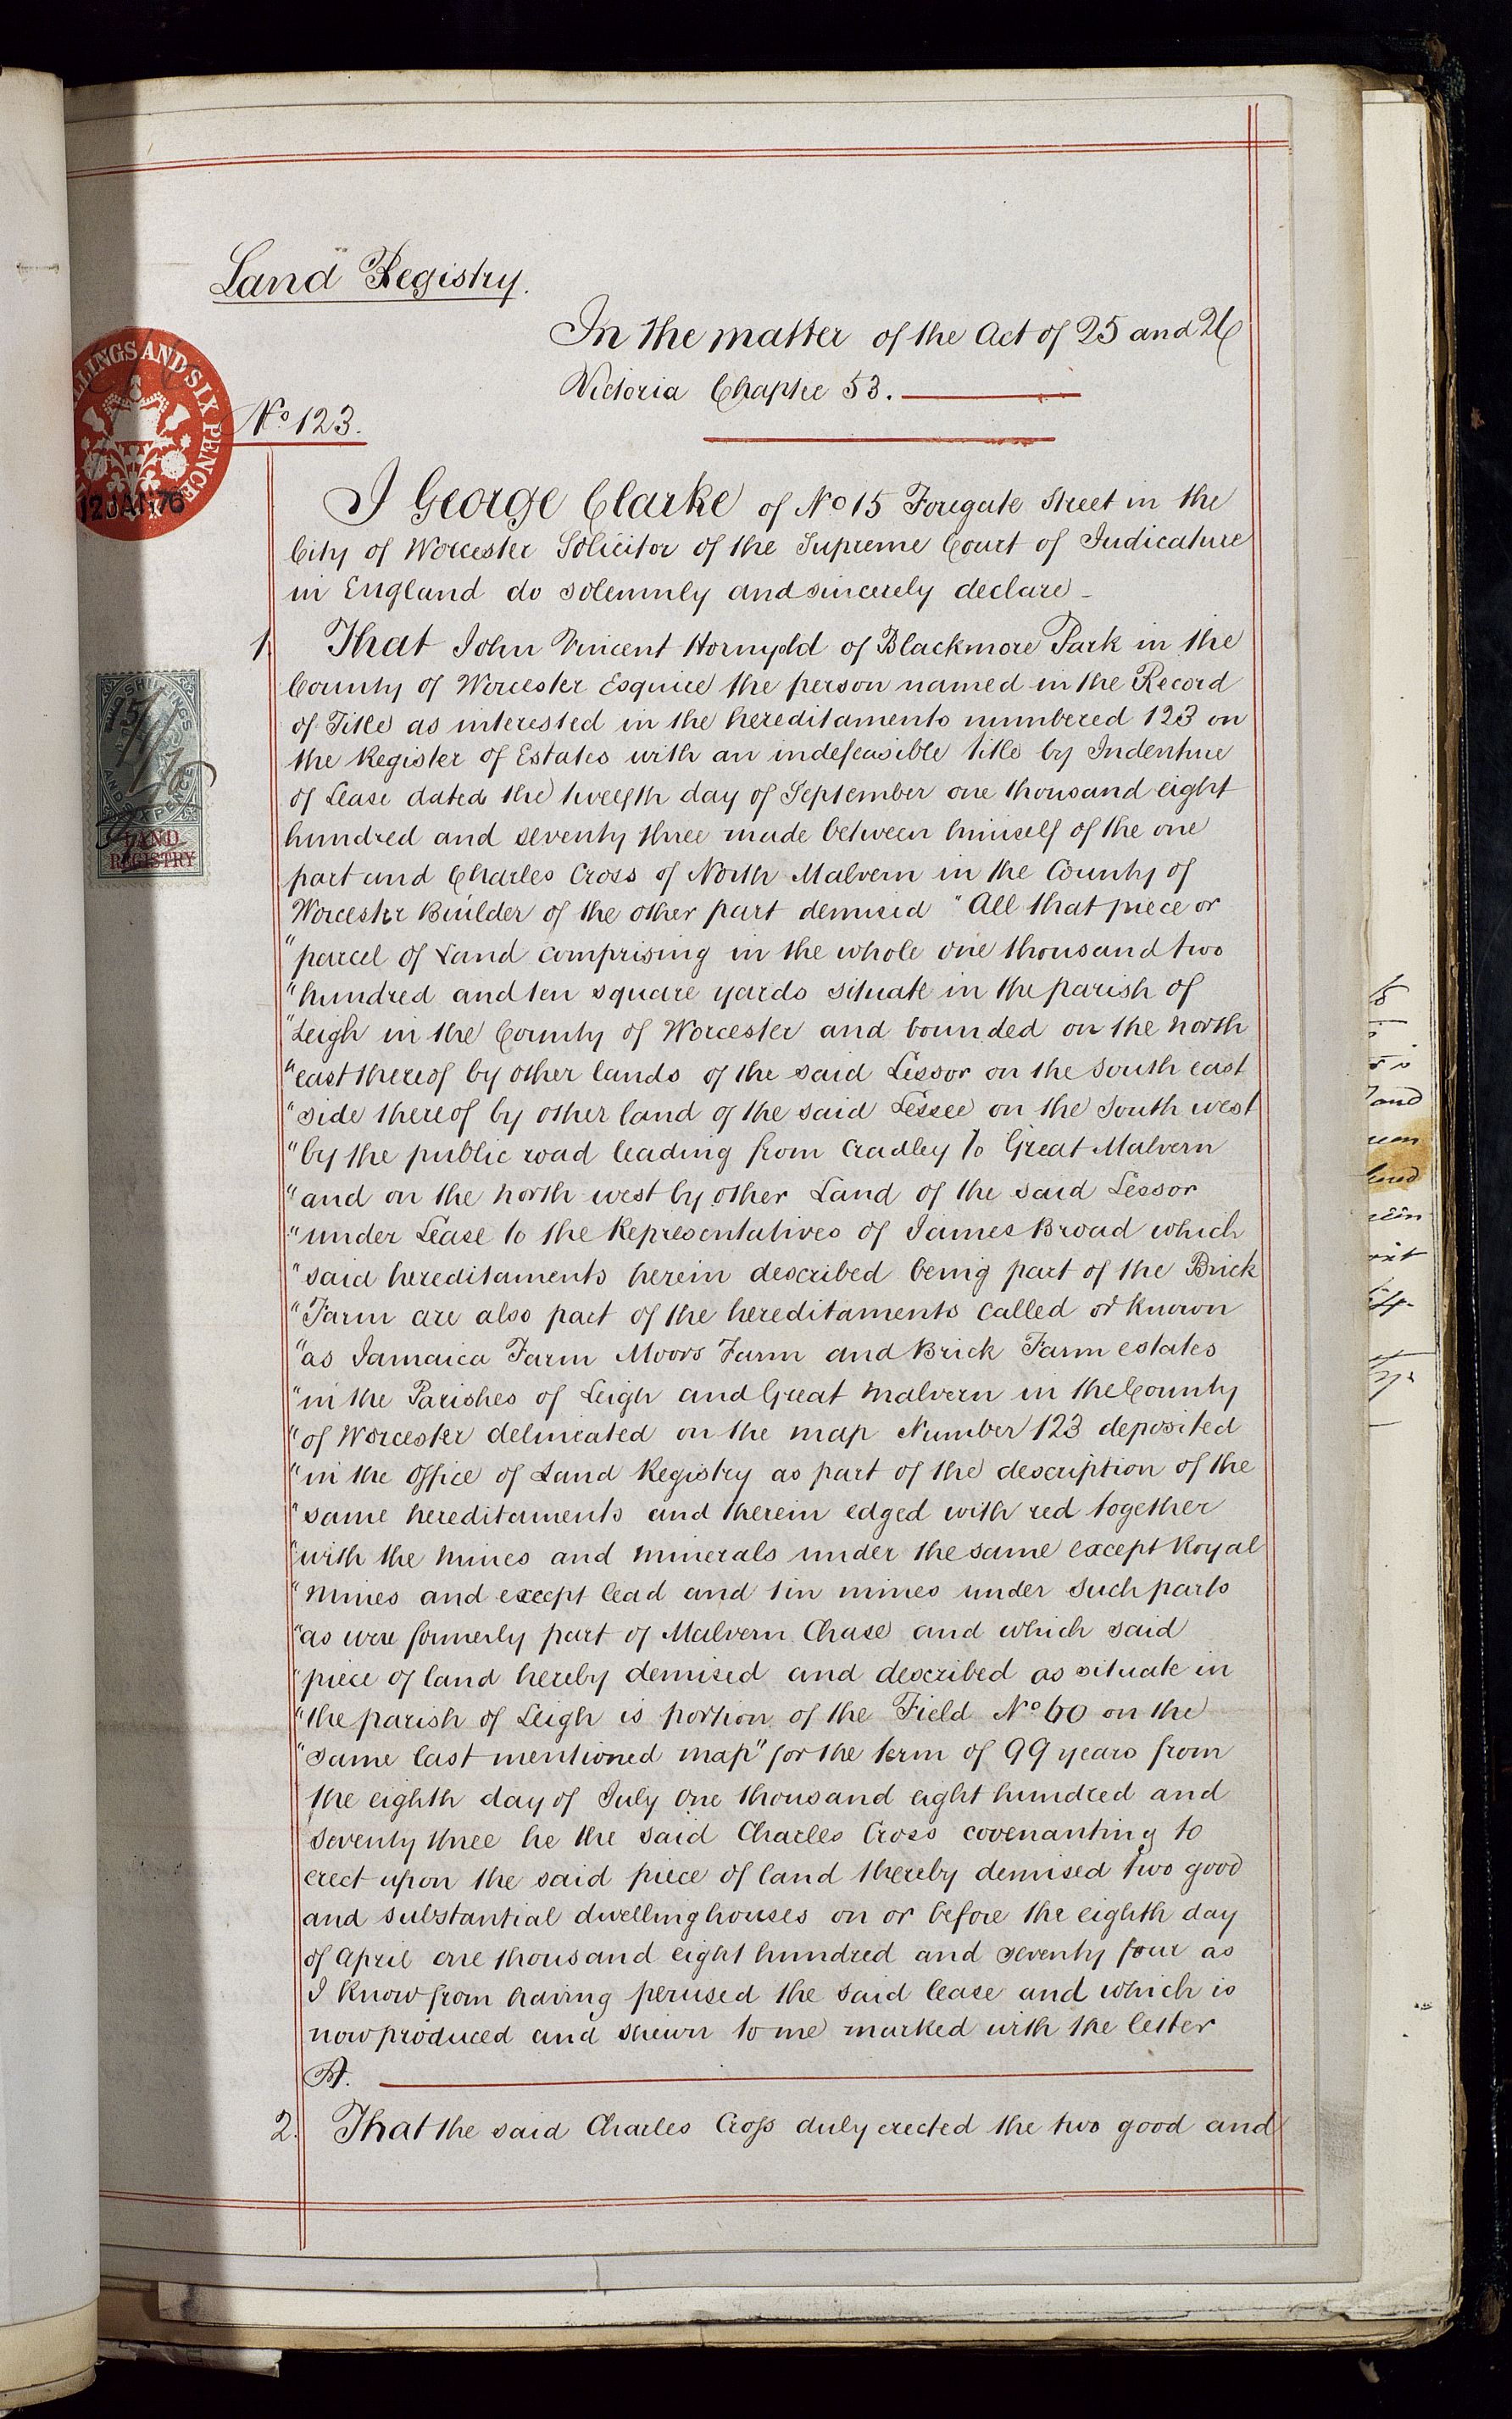 Land Registry.
In the matter of the Act of 25 and 26
Victoria Chapter 53.
No 123.
LLINGS AND SIX PENCE
12 JAN 76
SHILLINGS
AND SIX PENCE
LAND
REGISTRY
I George Clarke of No 15 Foregate Street in the
City of Worcester Solicitor of the Supreme Court of Judicature
in England do solemnly and sincerely declare -
1. That John Vincent Hornyold of Blackmore Park in the
County of Worcester Esquire the person named in the Record
of Title as interested in the hereditaments numbered 123 on
the Register of Estates with an indefeasible title by Indenture
of Lease dated the twelfth day of September one thousand eight
hundred and seventy three made between himself of the one
part and Charles Cross of North Malvern in the County of
Worcester Builder of the other part demised "All that piece or
"parcel of Land comprising in the whole one thousand two
"hundred and ten square yards situate in the parish of
"Leigh in the County of Worcester and bounded on the north
"east thereof by other lands of the said Lessor on the South east
"side thereof by other land of the said Lessee on the South west
"by the public road leading from Cradley to Great Malvern
"and on the north west by other Land of the said Lessor
"under Lease to the Representatives of James Broad which
"said hereditaments herein described being part of the Brick
"Farm are also part of the hereditaments called or known
"as Jamaica Farm Moors Farm and Brick Farm estates
"in the Parishes of Leigh and Great Malvern in the County
"of Worcester delineated on the map Number 123 deposited
"in the Office of Land Registry as part of the description of the
"same hereditaments and therein edged with red together
"with the mines and minerals under the same except Royal
"Mines and except lead and tin mines under such parts
"as were formerly part of Malvern Chase and which said
"piece of land hereby demised and described as situate in
"the parish of Leigh is portion of the Field No 60 on the
"same last mentioned map" for the term of 99 years from
the eighth day of July One thousand eight hundred and
seventy three he the said Charles Cross covenanting to
erect upon the said piece of land thereby demised two good
and substantial dwellinghouses on or before the eighth day
of April one thousand eight hundred and seventy four as
I know from having perused the said lease and which is
now produced and shewn to me marked with the letter
A.
2. That the said Charles Cross duly erected the two good and